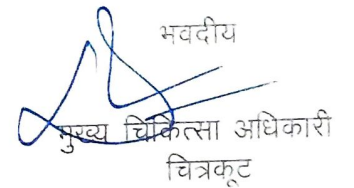 भवदीय
मुख्य चिकित्सा अधिकारी
चित्रकूट